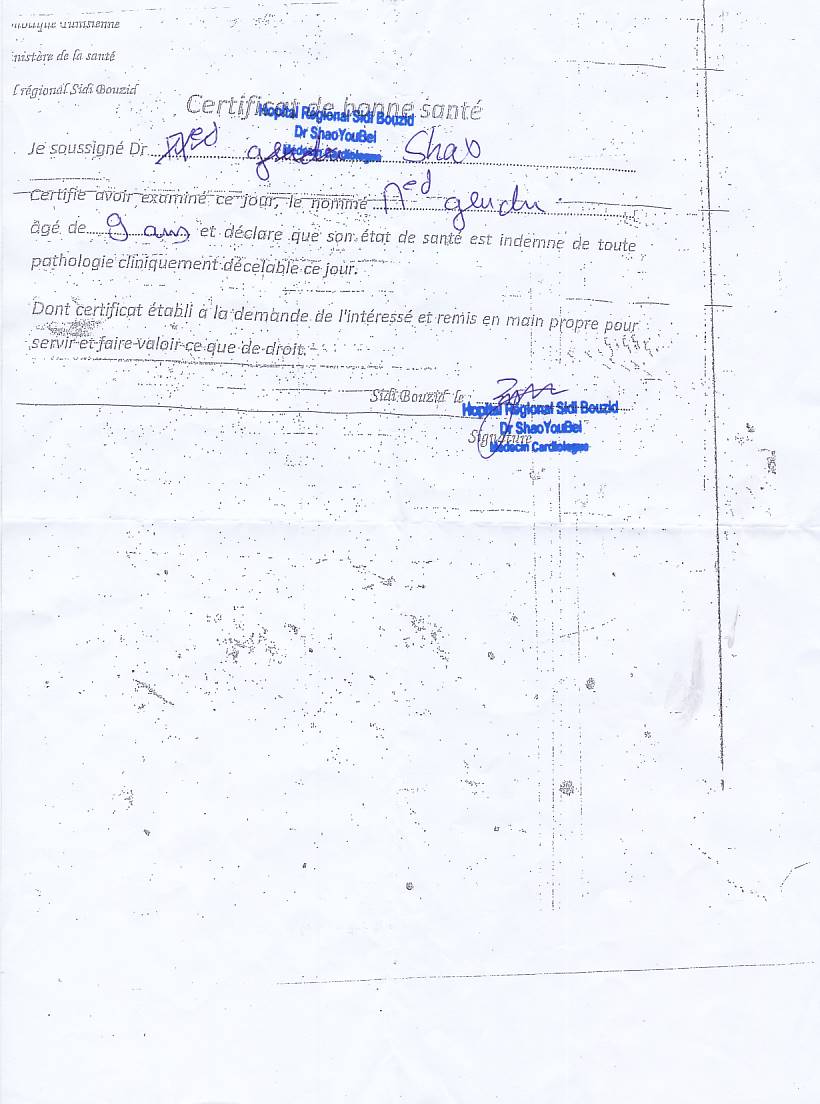 nistère de la santé
l régional Sidi Bouzid
Certificat de bonne santé
Hopital Régional Sidi Bouzid
Dr ShaoYouBel
Médecin Cardiologue
Je soussigné Dr Shao
Certifie avoir examiné ce jour, le nommé
âgé de 9 ans et déclare que son état de santé est indemne de toute
pathologie cliniquement décelable ce jour.
Dont certificat établi a la demande de l'intéressé et remis en main propre pour
servir et faire valoir ce que de droit.
Sidi Bouzid le
Hopital Régional Sidi Bouzid
Dr ShaoYouBel
Signature
Médecin Cardiologue